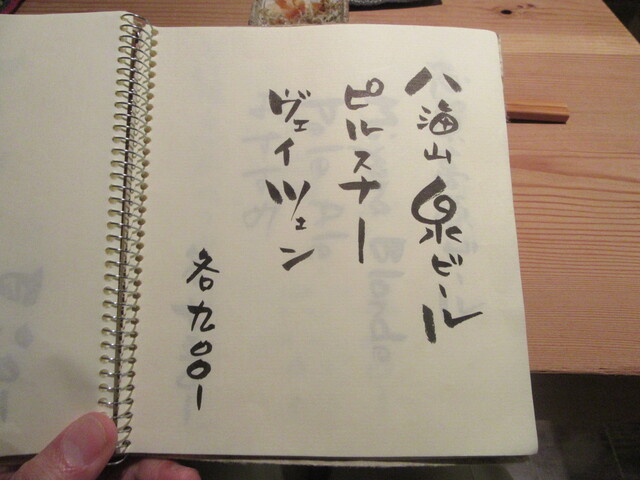 八海山 泉ビール
ピルスナー
ヴェイツェン
各九〇〇ー